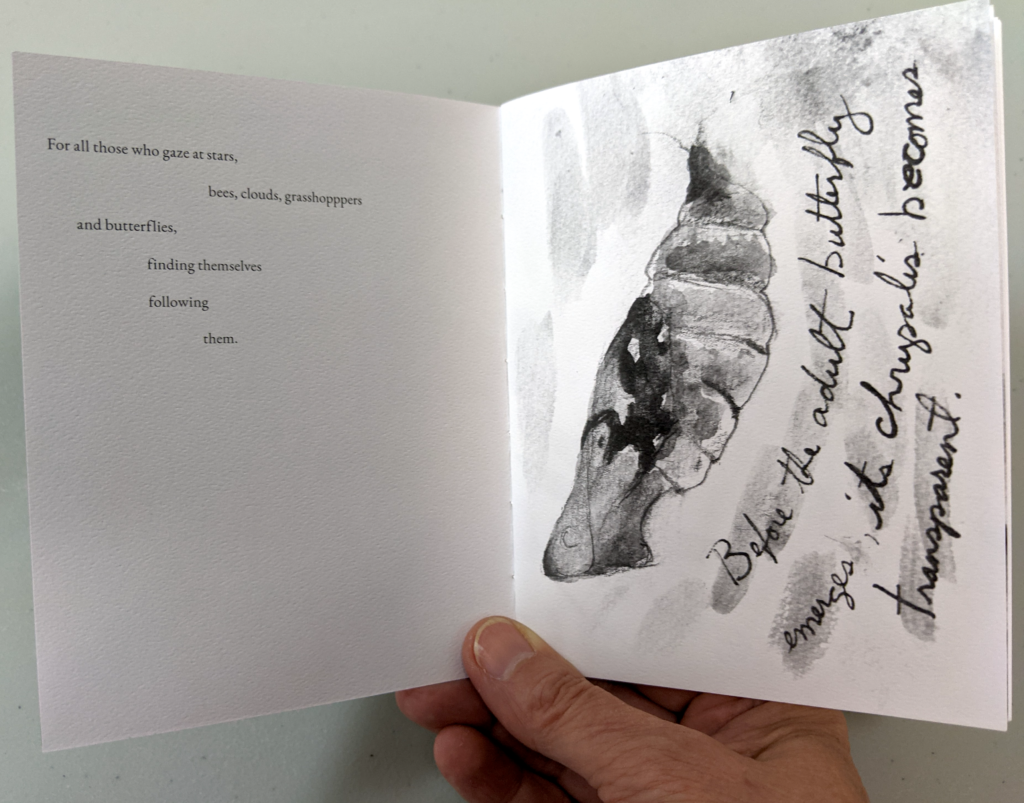 For all those who gaze at stars,
bees, clouds, grasshopppers
and butterflies,
finding themselves
following
them.
Before the adult butterfly
emerges, its chrysalis becomes
transparent.